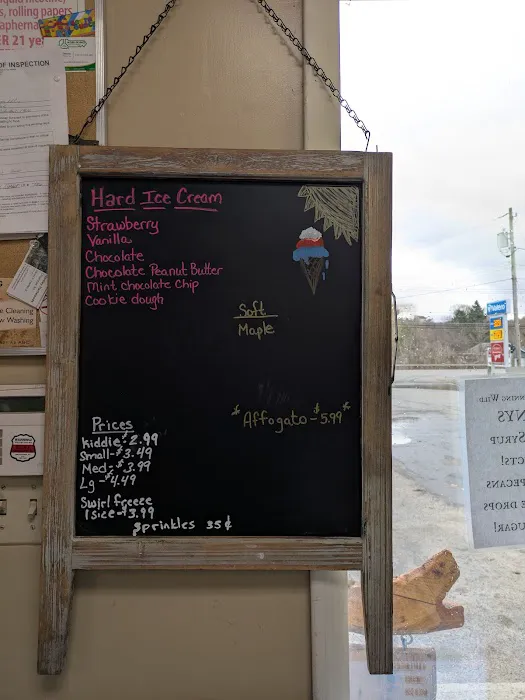 , rolling papers
ER 21 ye
OF INSPECTION
Hard Ice Cream
Strawberry
Vanilla
Chocolate
Chocolate Peanut Butter
Mint chocolate Chip
Cookie dough
Soft
Maple
*Affogato-$5.99*
Prices
kiddie-$2.99
Small-$3.49
Med-$3.99
Lg-$4.49
Swirl freeze
1 size-$3.99
Sprinkles 35¢
Cleaning
Washing
NYS
SYRUP
CTS!
PECANS
E DROPS
UGAR!